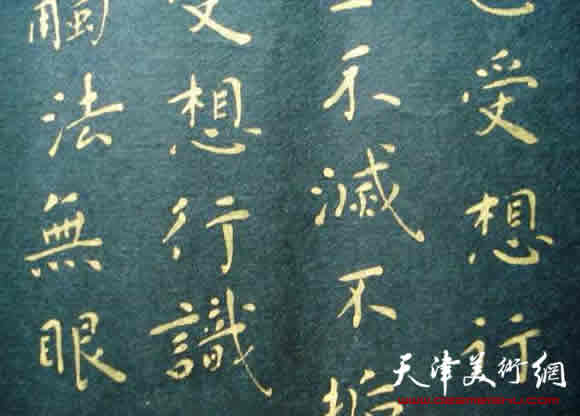 受想行
不滅不
受想行識
觸法無眼
天津美術網